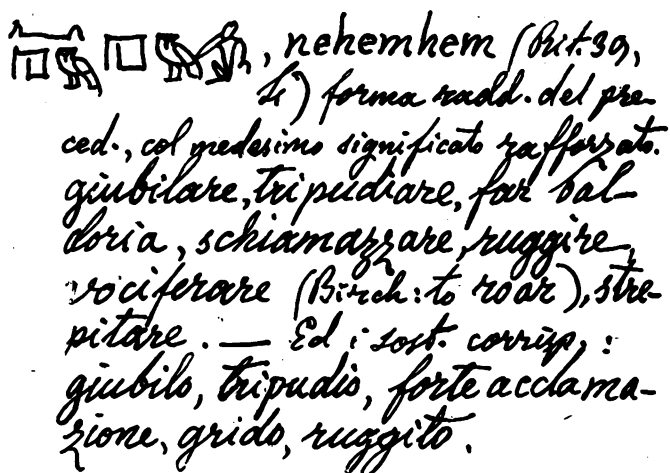 , nehemhem (Rit. 39,
) forma radd. del pre-
ced., col medesimo significato rafforzato.
giubilare, tripudiare, far bal-
doria, schiamazzare, ruggire,
vociferare (Birch: to roar), stre-
pitare. — Ed i sost. corrisp.:
giubilo, tripudio, forte acclama-
zione, grido, ruggito.